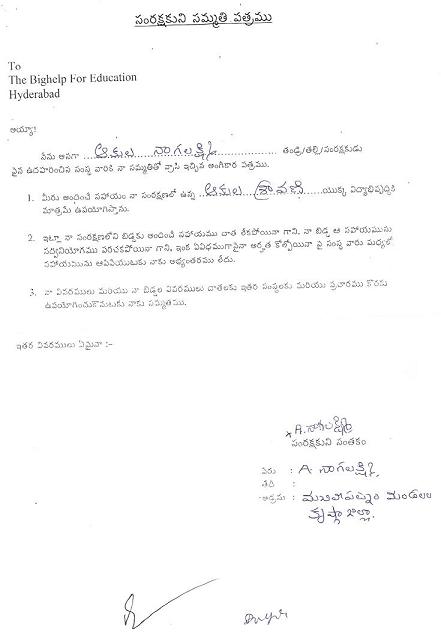 సంరక్షకుని సమ్మతి పత్రము
To
The Bighelp For Education
Hyderabad
అయ్యా!
నేను అనగా ..ఆకుల నాగలక్ష్మి.. తండ్రి/తల్లి/సంరక్షకుడు
పైన ఉదహరించిన సంస్థ వారికి నా సమ్మతితో వ్రాసి ఇచ్చిన అంగీకార పత్రము.
1. మీరు అందించే సహాయం నా సంరక్షణలో ఉన్న ..ఆకుల శ్రావణి.. యొక్క విద్యాభివృద్ధికి
మాత్రమే ఉపయోగిస్తాను.
2. ఇట్లూ నా సంరక్షణలోని బిడ్డకు అందించే సహాయము దాత లేకపోయినా గాని, నా బిడ్డ ఆ సహాయమును
సద్వినియోగము పరచకపోయినా గాని, ఇంక ఏవిధముగానైనా అర్హత కోల్పోయినా పై సంస్థ వారు మధ్యలో
సహాయమును ఆపివేయుటకు నాకు అభ్యంతరము లేదు.
3. నా వివరములు మరియు నా బిడ్డల వివరములు దాతలకు ఇతర సంస్థలకు మరియు ప్రచారము కొరకు
ఉపయోగించుకొనుటకు నాకు సమ్మతము.
ఇతర వివరములు ఏమైనా :-
x A. నాగలక్ష్మి
సంరక్షకుని సంతకం
పేరు : A. నాగలక్ష్మి.
తేది :
అడ్రసు : మండలం
కృష్ణాజిల్లా.